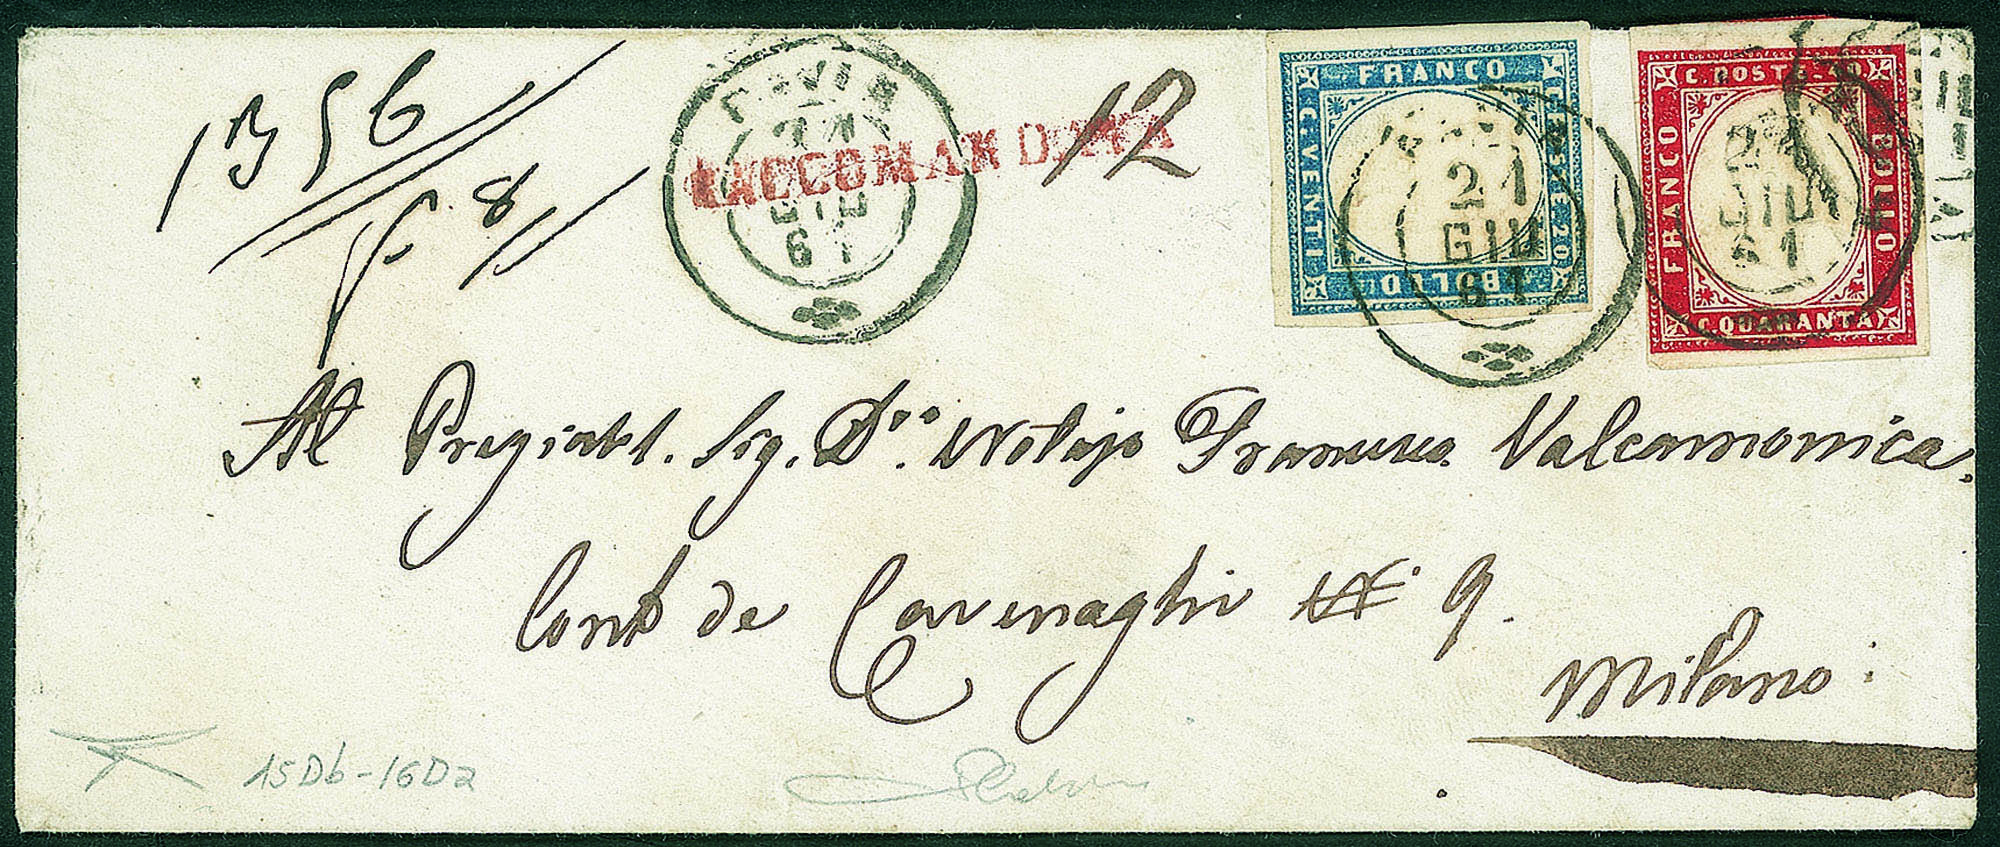 1356
f. 8
PAVIA
21
GIU
61
RACCOMANDATA
12
FRANCO
C. VENTI
POSTE 20
BOLLO
21
GIU
61
C. POSTE. 40
FRANCO
BOLLO
C. QUARANTA
21
GIU
61
Al Pregiabl. Sig. Dr. Notajo Francesco Valcamonica.
Contr de Cavenaghi N. 9.
Milano:
15Db-16Da